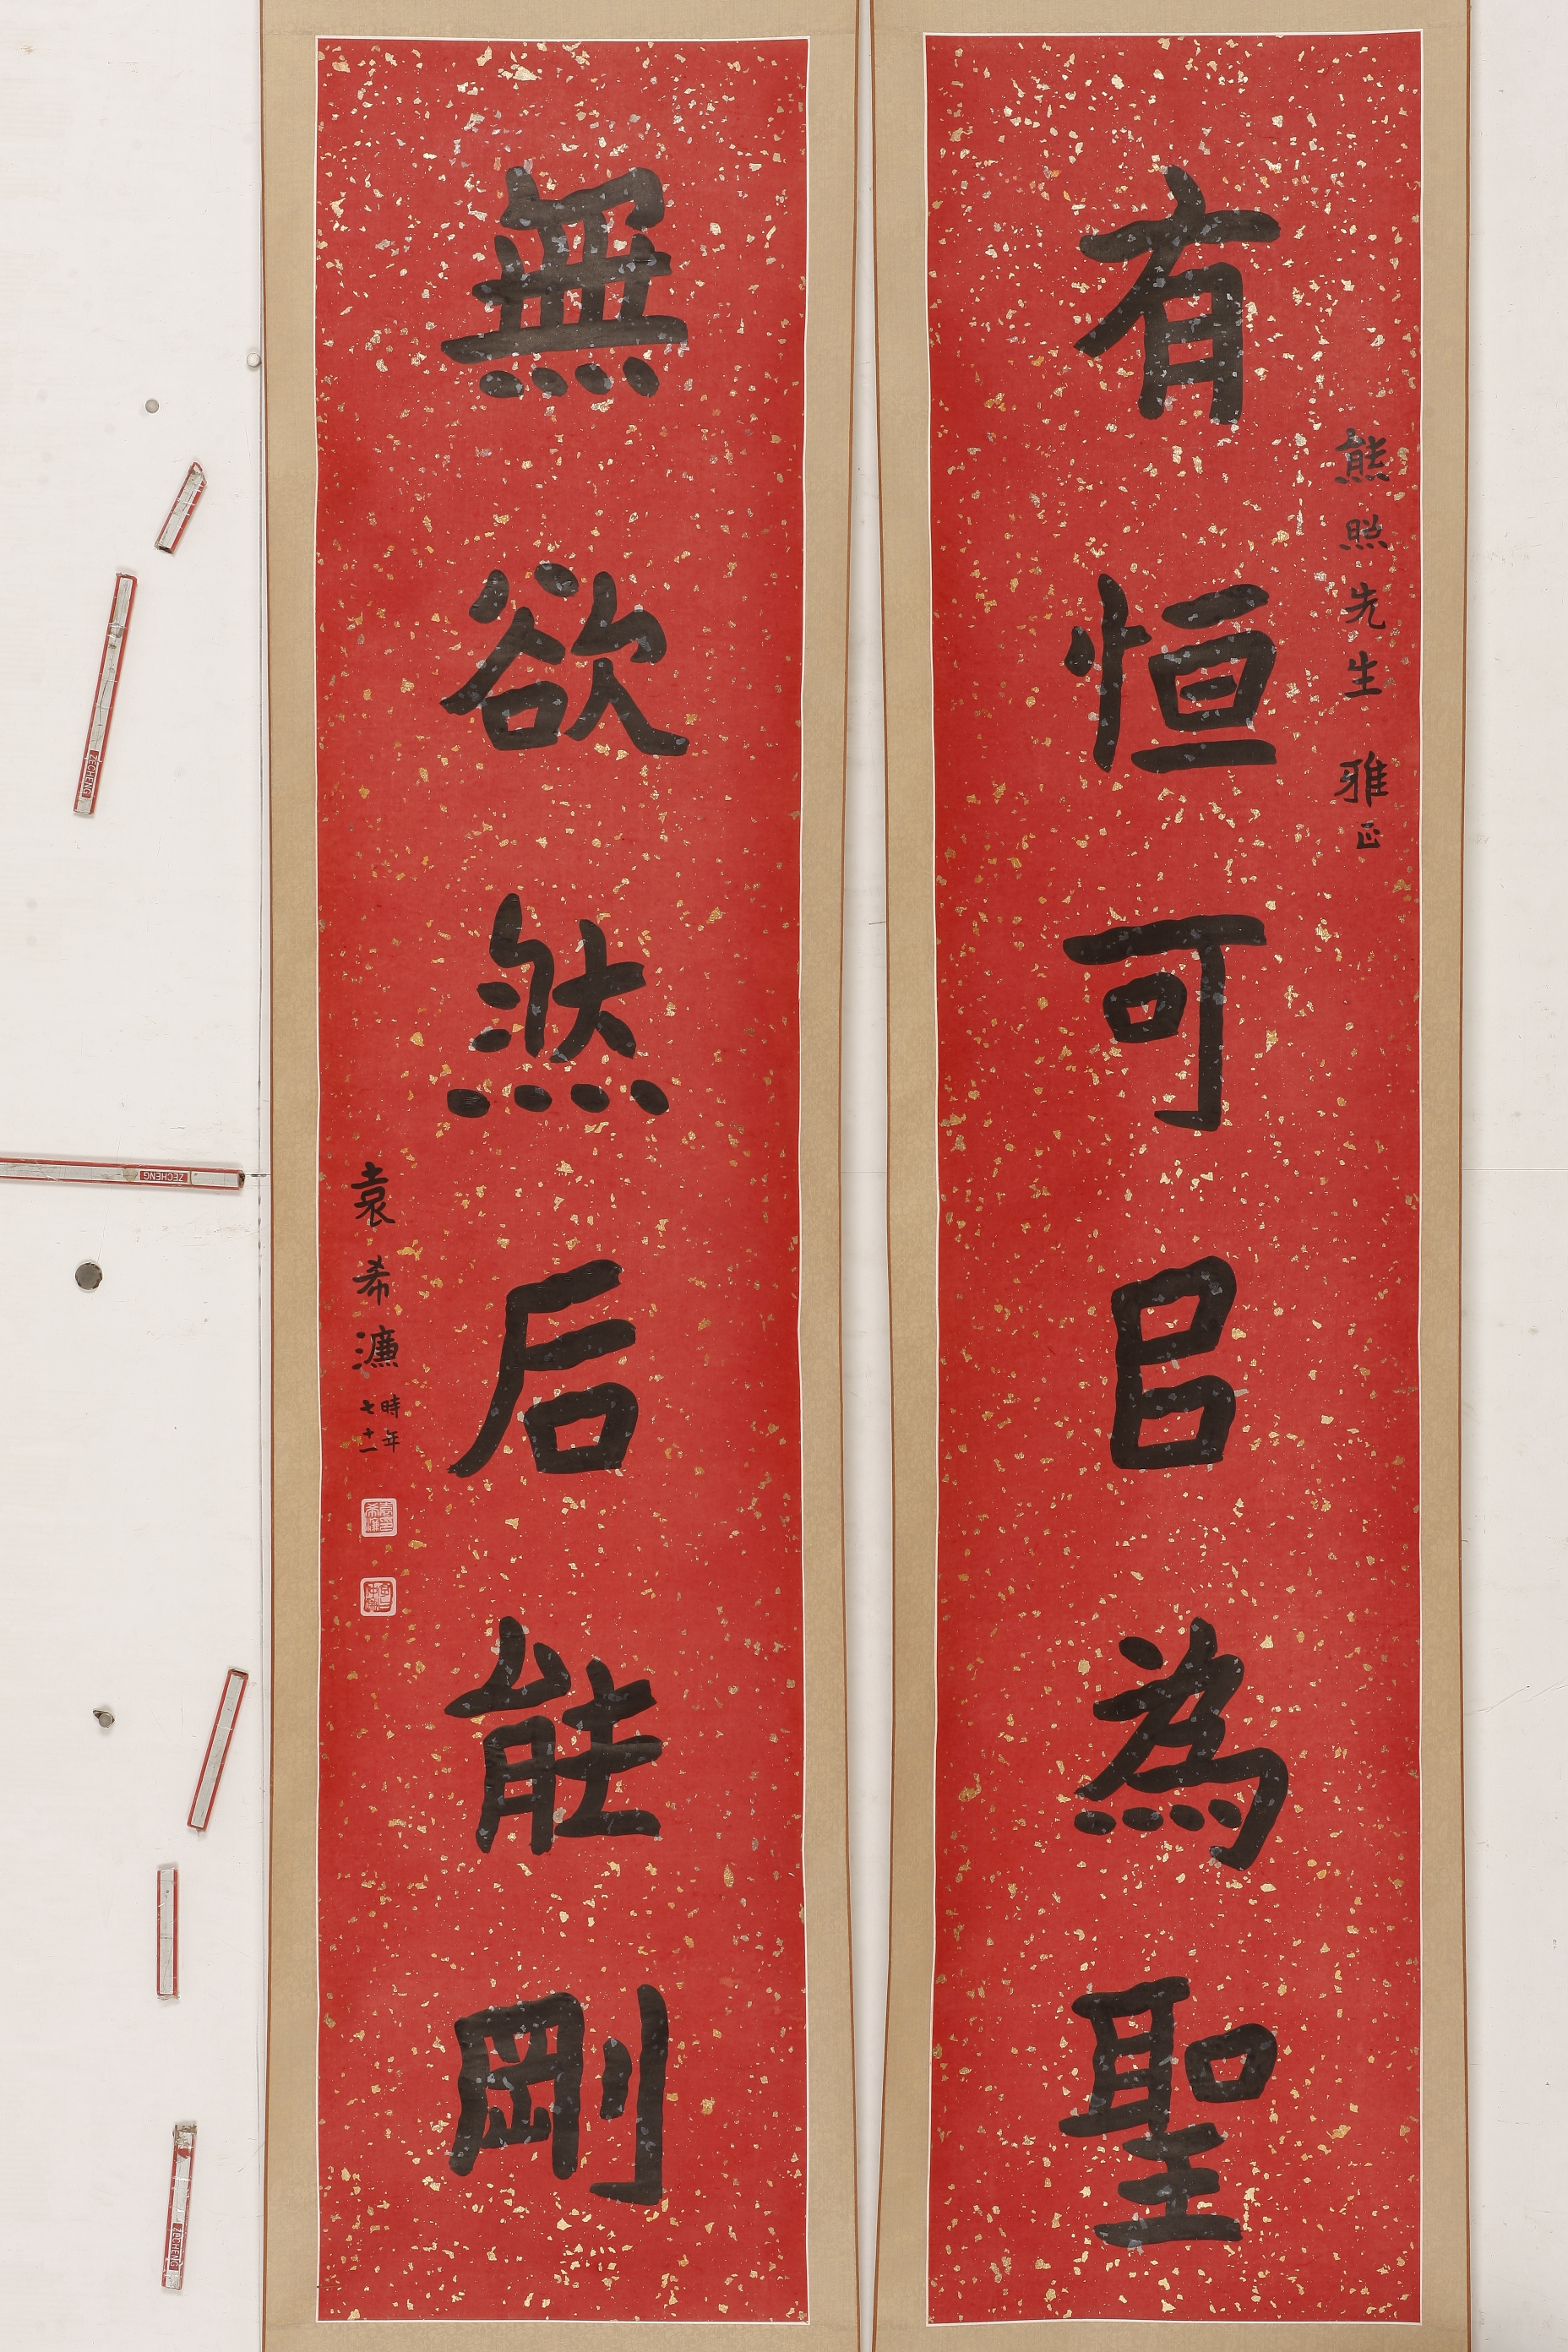 有恒可㠯為聖
熊照先生雅正
無欲然后能剛
袁希濂時年七十一
ZECHENG
ZECHENG
ZECHENG